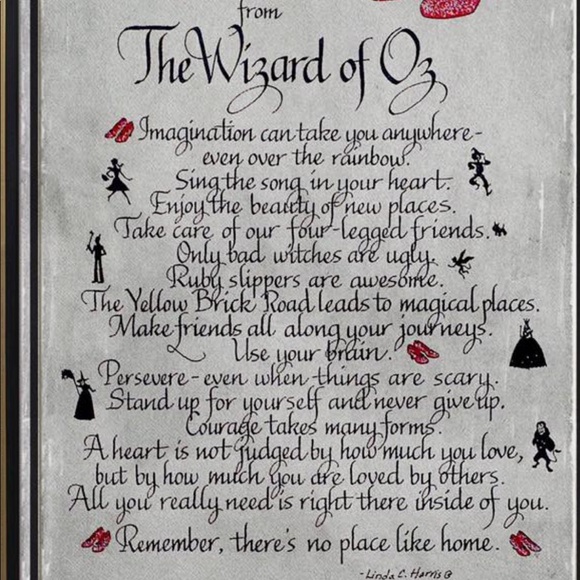 from
The Wizard of Oz
Imagination can take you anywhere-
even over the rainbow.
Sing the song in your heart.
Enjoy the beauty of new places.
Take care of our four-legged friends.
Only bad witches are ugly.
Ruby slippers are awesome.
The Yellow Brick Road leads to magical places.
Make friends all along your journeys.
Use your brain.
Persevere - even when things are scary.
Stand up for yourself and never give up.
Courage takes many forms.
A heart is not judged by how much you love,
but by how much you are loved by others.
All you really need is right there inside of you.
Remember, there's no place like home.
-Linda C. Harris©